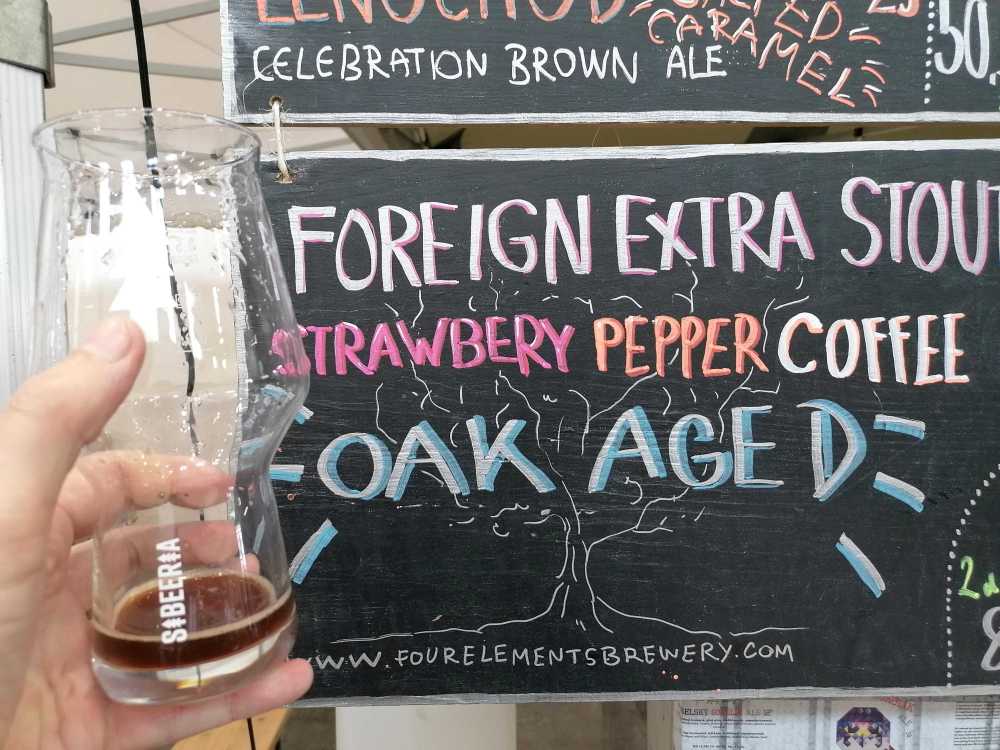 SALTED
CARAMEL
CELEBRATION BROWN ALE
50.
FOREIGN EXTRA STOU
STRAWBERY PEPPER COFFEE
OAK AGED
WWW.FOURELEMENTSBREWERY.COM
S BEER A